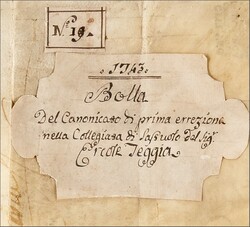 N.° 19.
1743.
Bolla
Del Canonicato di prima errezione
nella Collegiata di Sassuolo del Sig.r
Ercole Teggia